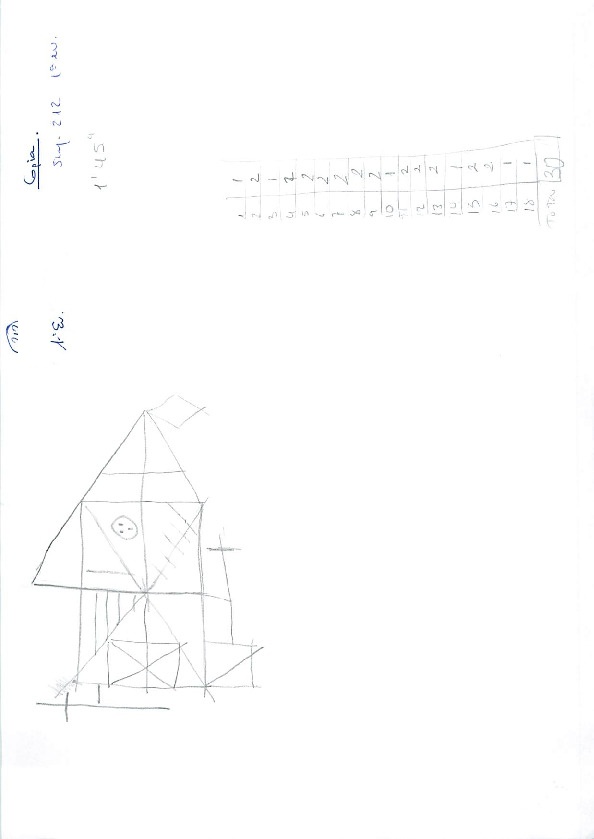 Copia.
Suj. 212 1ª ev.
1'45"
1 1
2 2
3 1
4 2
5 2
6 2
7 2
8 2
9 2
10 1
11 2
12 2
13 2
14 1
15 2
16 2
17 1
18 1
TOTAL 30
1ª Ev.